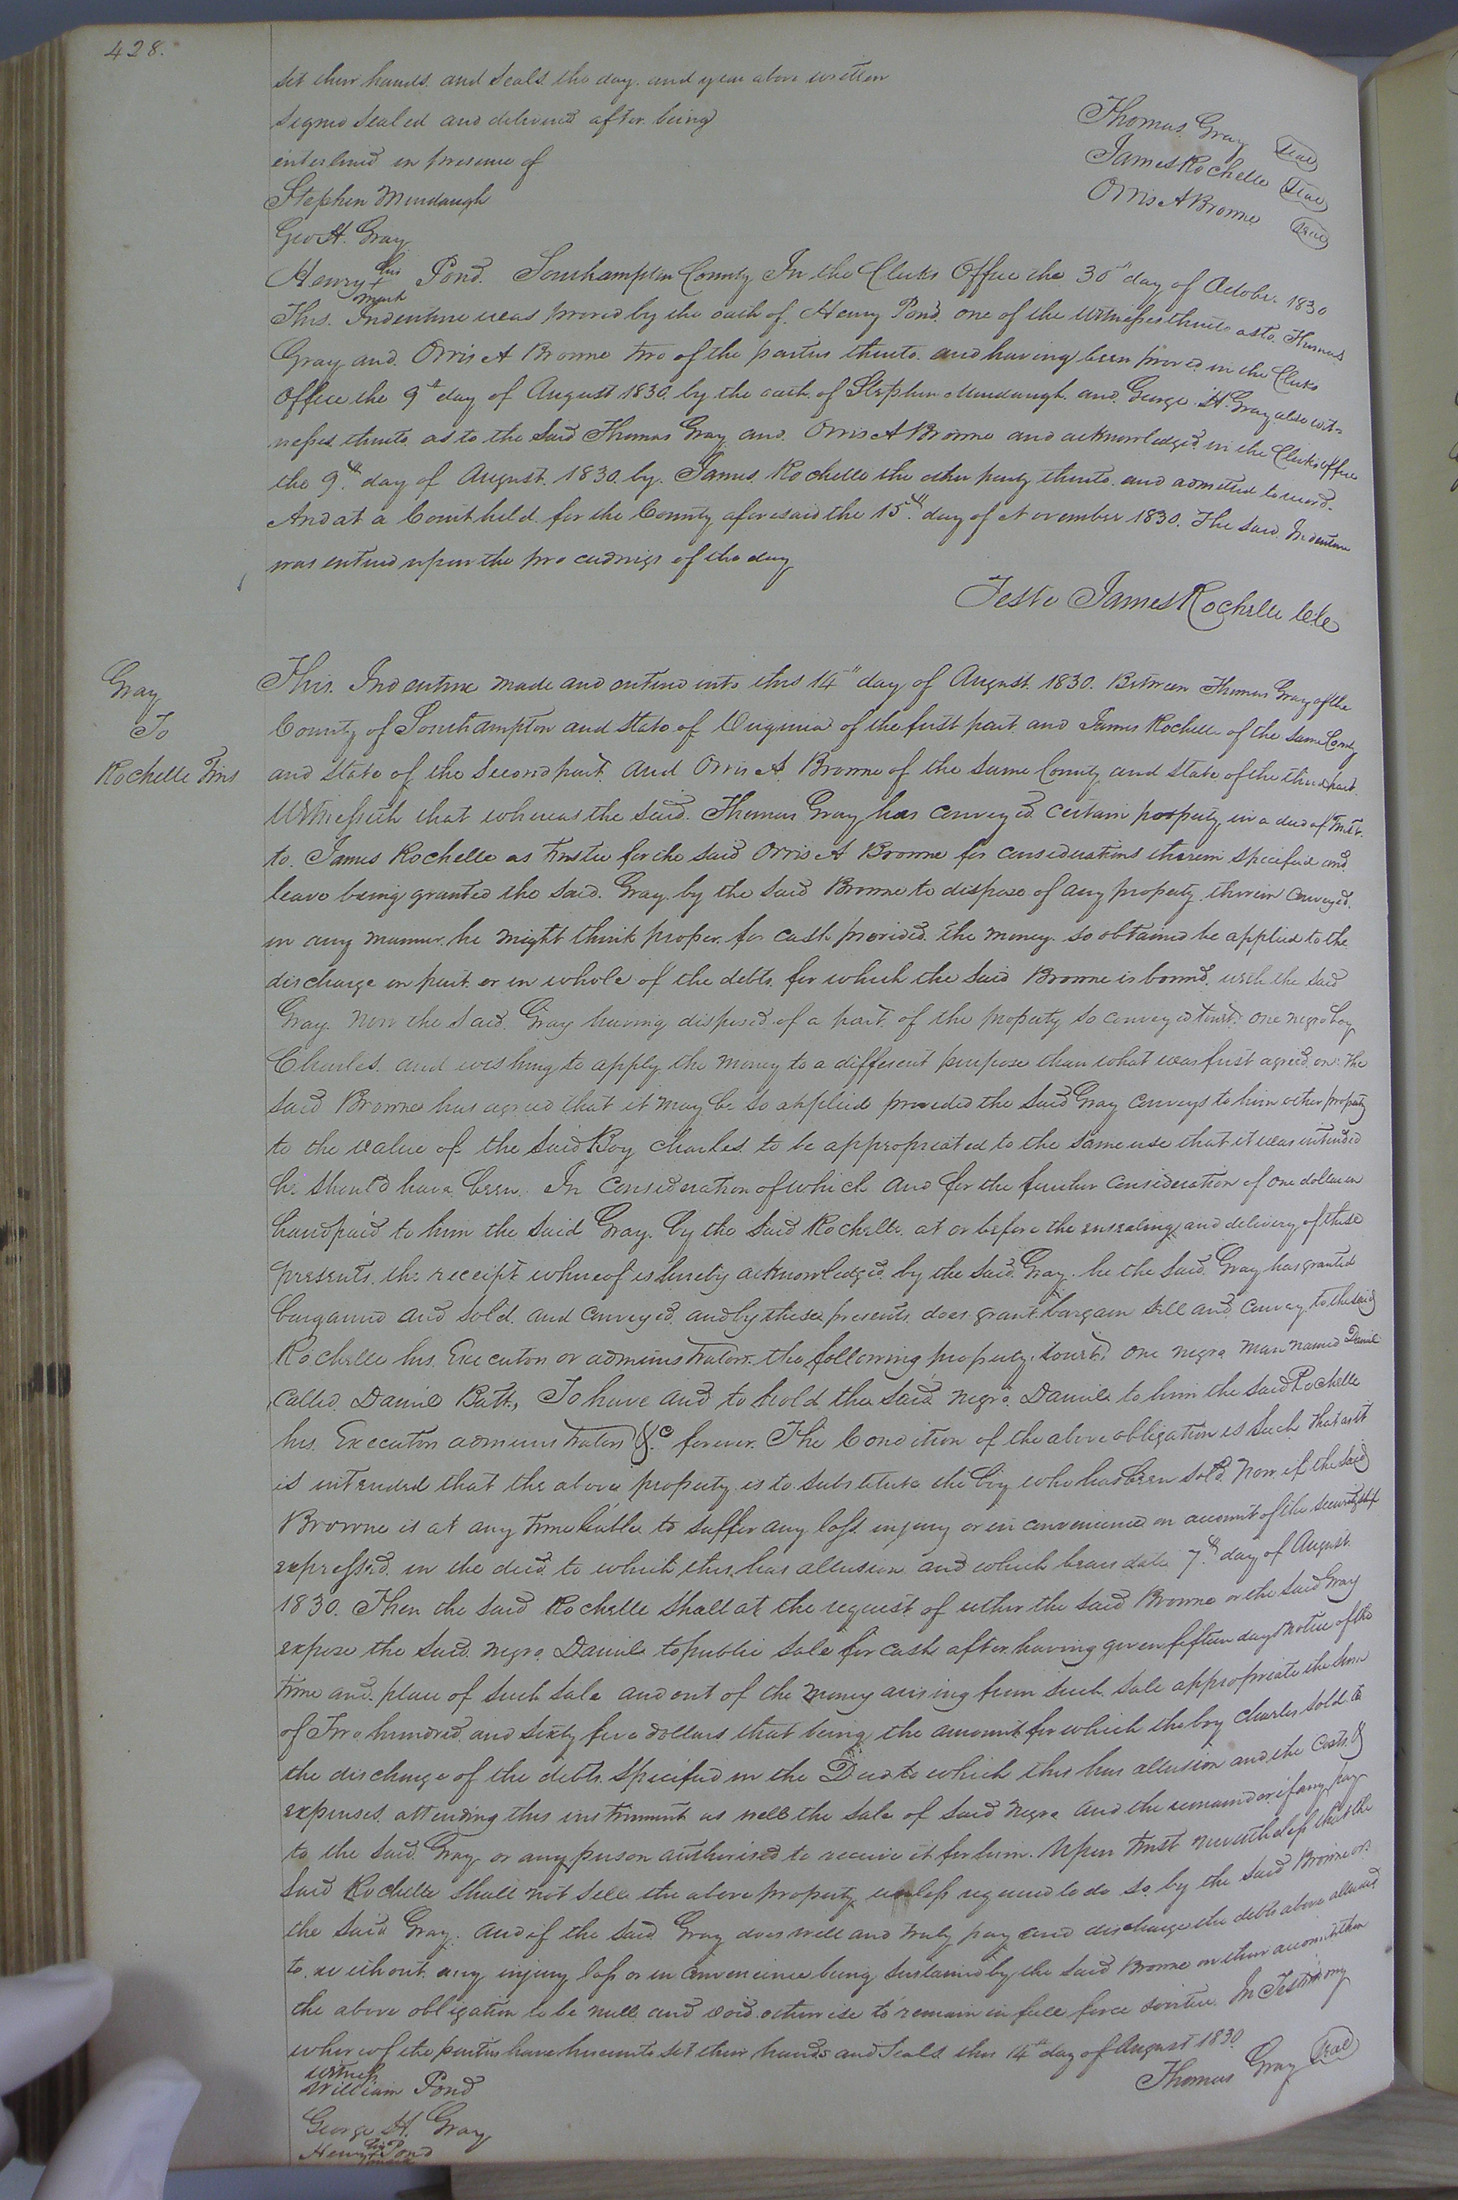 428.
set their hands and seals the day and year above written
signed sealed and delivered after being
interlined in presence of
Thomas Gray Seal
James Rochelle Seal
Orris A Browne Seal
Stephen Mundaugh
Geo H. Gray
Henry his + mark Pond. Southampton County In the Clerks Office the 30th day of October 1830
This Indenture was proved by the oath of Henry Pond one of the witnesses thereto as to Thomas
Gray and Orris A Browne two of the parties thereto and having been proved in the Clerks
Office the 9th day of August 1830 by the oath of Stephen Mundaugh and George H. Gray also wit-
nesses thereto as to the said Thomas Gray and Orris A Browne and acknowledged in the Clerks office
the 9th day of August 1830 by James Rochelle the other party thereto and admitted to record.
And at a Court held for the County aforesaid the 15th day of November 1830. The said Indenture
was entered upon the proceedings of the day
Teste James Rochelle Clk
Gray
To
Rochelle Trus
This Indenture made and entered into this 14th day of August 1830. Between Thomas Gray of the
County of Southampton and State of Virginia of the first part and James Rochelle of the same County
and State of the Second part And Orris A. Browne of the same County and state of the third part
Witnesseth that whereas the said Thomas Gray has conveyed certain property in a deed of Trust
to James Rochelle as trustee for the said Orris A Browne for considerations therein specified and
leave being granted the said Gray by the said Browne to dispose of any property therein conveyed
in any manner he might think proper for cash provided the money so obtained be applied to the
discharge in part or in whole of the debts for which the said Browne is bound with the said
Gray. Now the said Gray having disposed of a part of the property so conveyed towit: one negro boy
Charles and wishing to apply the money to a different purpose than what was first agreed on: the
said Browne has agreed that it may be so applied provided the said Gray conveys to him other property
to the value of the said Boy Charles to be appropriated to the same use that it was intended
he should have been. In consideration of which and for the further consideration of one dollar in
hand paid to him the said Gray by the said Rochelle at or before the ensealing and delivery of these
presents, the receipt whereof is hereby acknowledged by the said Gray he the said Gray has granted
bargained and sold and conveyed and by these presents does grant bargain sell and convey to the said
Rochelle his Executors or administrators the following property, towit, one negro man named Daniel
called Daniel Batt, To have and to hold the said negro Daniel to him the said Rochelle
his Executors administrators &c forever. The Condition of the above obligation is such that as it
is intended that the above property is to substitute the boy who has been sold. Now if the said
Browne is at any time liable to suffer any loss injury or inconvenience on account of the securityship
expressed in the deed to which this has allusion and which bears date 7th day of August
1830. Then the said Rochelle shall at the request of either the said Browne or the said Gray
expose the said negro Daniel to public sale for cash after having given fifteen days notice of the
time and place of such sale and out of the money arising from such sale appropriate the sum
of Two hundred and sixty five dollars that being the amount for which the boy Charles sold to
the discharge of the debts specified in the Deed to which this has allusion and the costs &
expenses attending this instrument as well the sale of said negro and the remainder if any pay
to the said Gray or any person authorised to receive it for him. Upon trust nevertheless that the
said Rochelle shall not sell the above property unless required to do so by the said Browne or
the said Gray. And if the said Gray does well and truly pay and discharge the debts above alluded
to without any injury loss or inconvenience being sustained by the said Browne on their account then
the above obligation to be null and void otherwise to remain in full force & virtue. In Testimony
whereof the parties have hereunto set their hands and seals this 14th day of August 1830
Witness
Thomas Gray Seal
William Pond
George H. Gray
Henry his + mark Pond